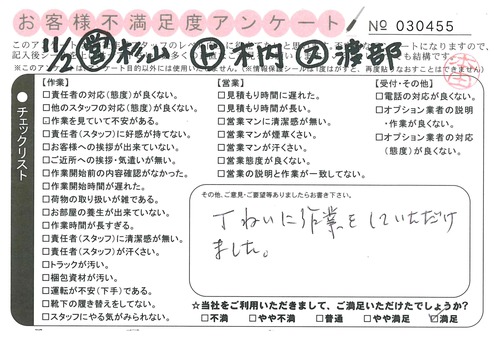 お客様不満足度アンケート
№ 030455
11/2 営 杉山 ト 木内 又 渡部
【作業】
□責任者の対応(態度)が良くない。
□他のスタッフの対応(態度)が良くない。
□作業を見ていて不安がある。
□責任者(スタッフ)に好感が持てない。
□お客様への挨拶が出来ていない。
□ご近所への挨拶・気遣いが無い。
□作業開始前の内容確認がなかった。
□作業開始時間が遅れた。
□荷物の取り扱いが雑である。
□お部屋の養生が出来ていない。
□作業時間が長すぎる。
□責任者(スタッフ)に清潔感が無い。
□責任者(スタッフ)が汗くさい。
□トラックが汚い。
□梱包資材が汚い。
□運転が不安(下手)である。
□靴下の履き替えをしてない。
□スタッフにやる気がみられない。
【営業】
□見積もり時間に遅れた。
□見積もり時間が長い。
□営業マンに清潔感が無い。
□営業マンが煙草くさい。
□営業マンが汗くさい。
□営業態度が良くない。
□営業の説明と作業が一致してない。
【受付・その他】
□電話の対応が良くない。
□オプション業者の説明
・作業が良くない。
□オプション業者の対応
(態度)が良くない。
チェックリスト
その他、ご意見・ご要望等ありましたらお書き下さい。
丁ねいに作業をしていただけ
ました。
☆当社をご利用いただきまして、ご満足いただけたでしょうか?
□不満 □やや不満 □普通 □やや満足 □満足